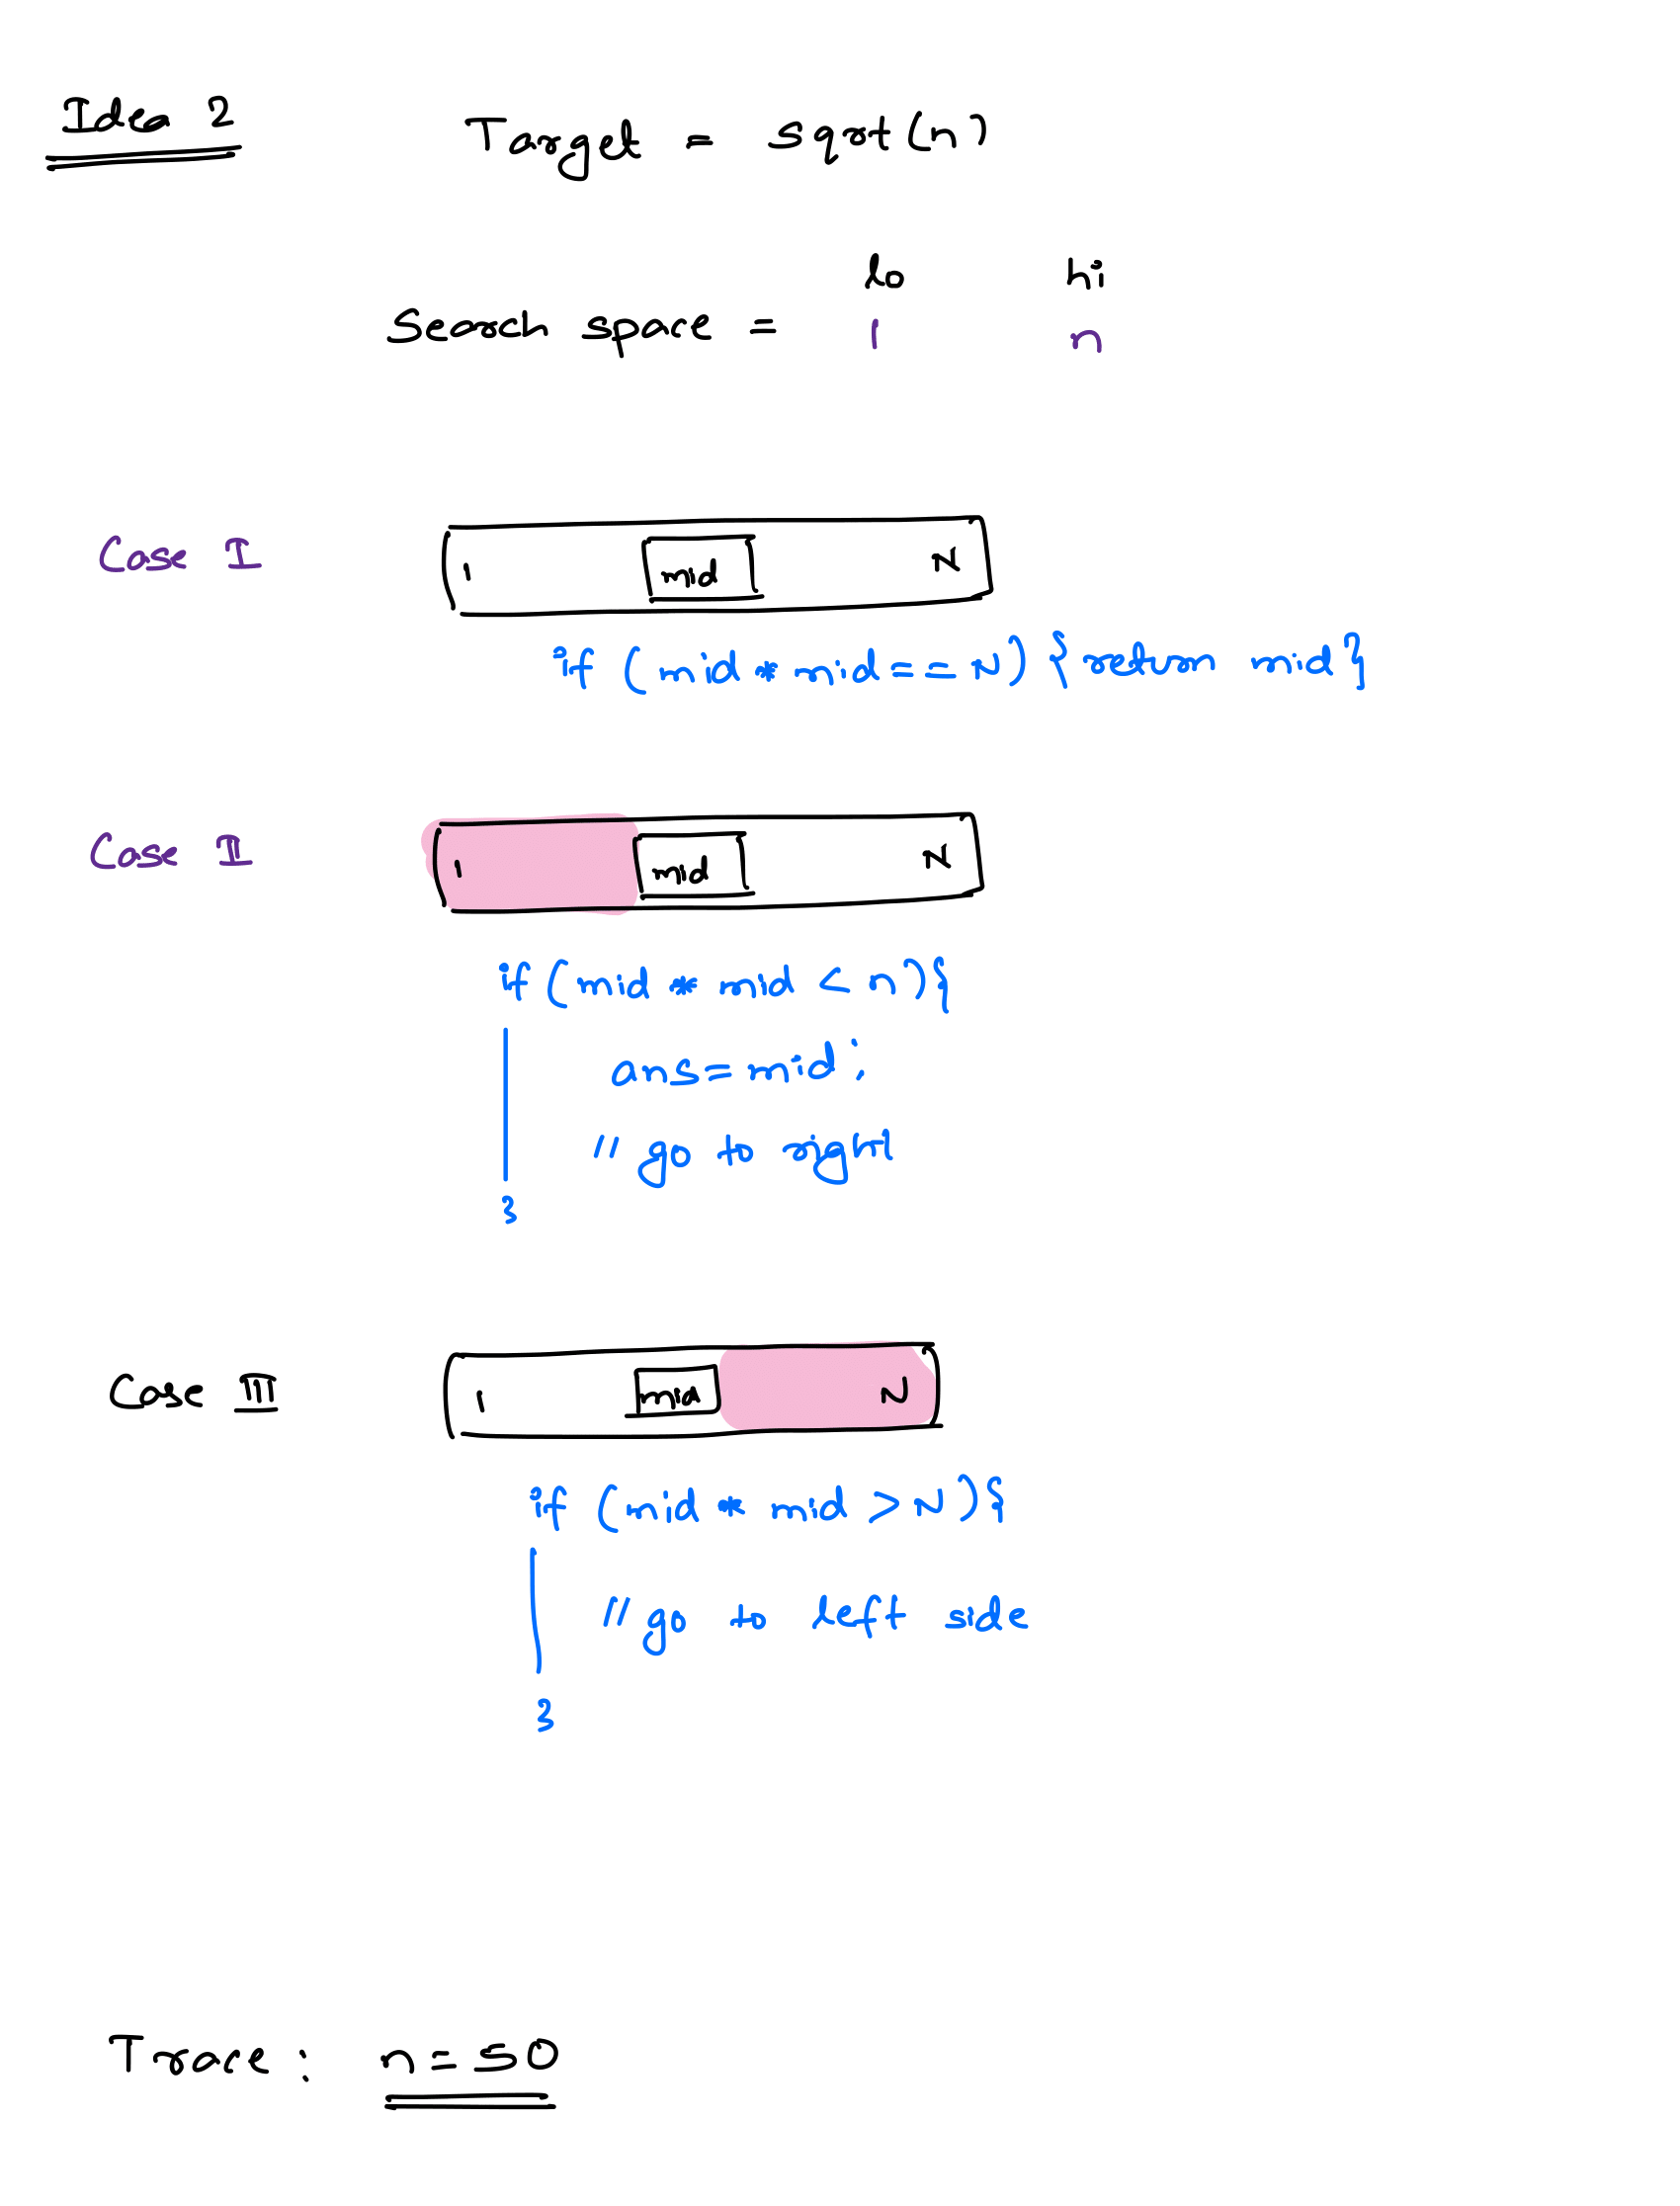 Idea 2
Target = sqrt(n)
lo hi
Search space = 1 n
Case I
1 mid N
if (mid * mid == N) {return mid}
Case II
1 mid N
if (mid * mid < n){
ans = mid;
// go to right
}
Case III
1 mid N
if (mid * mid > N){
// go to left side
}
Trace : n = 50